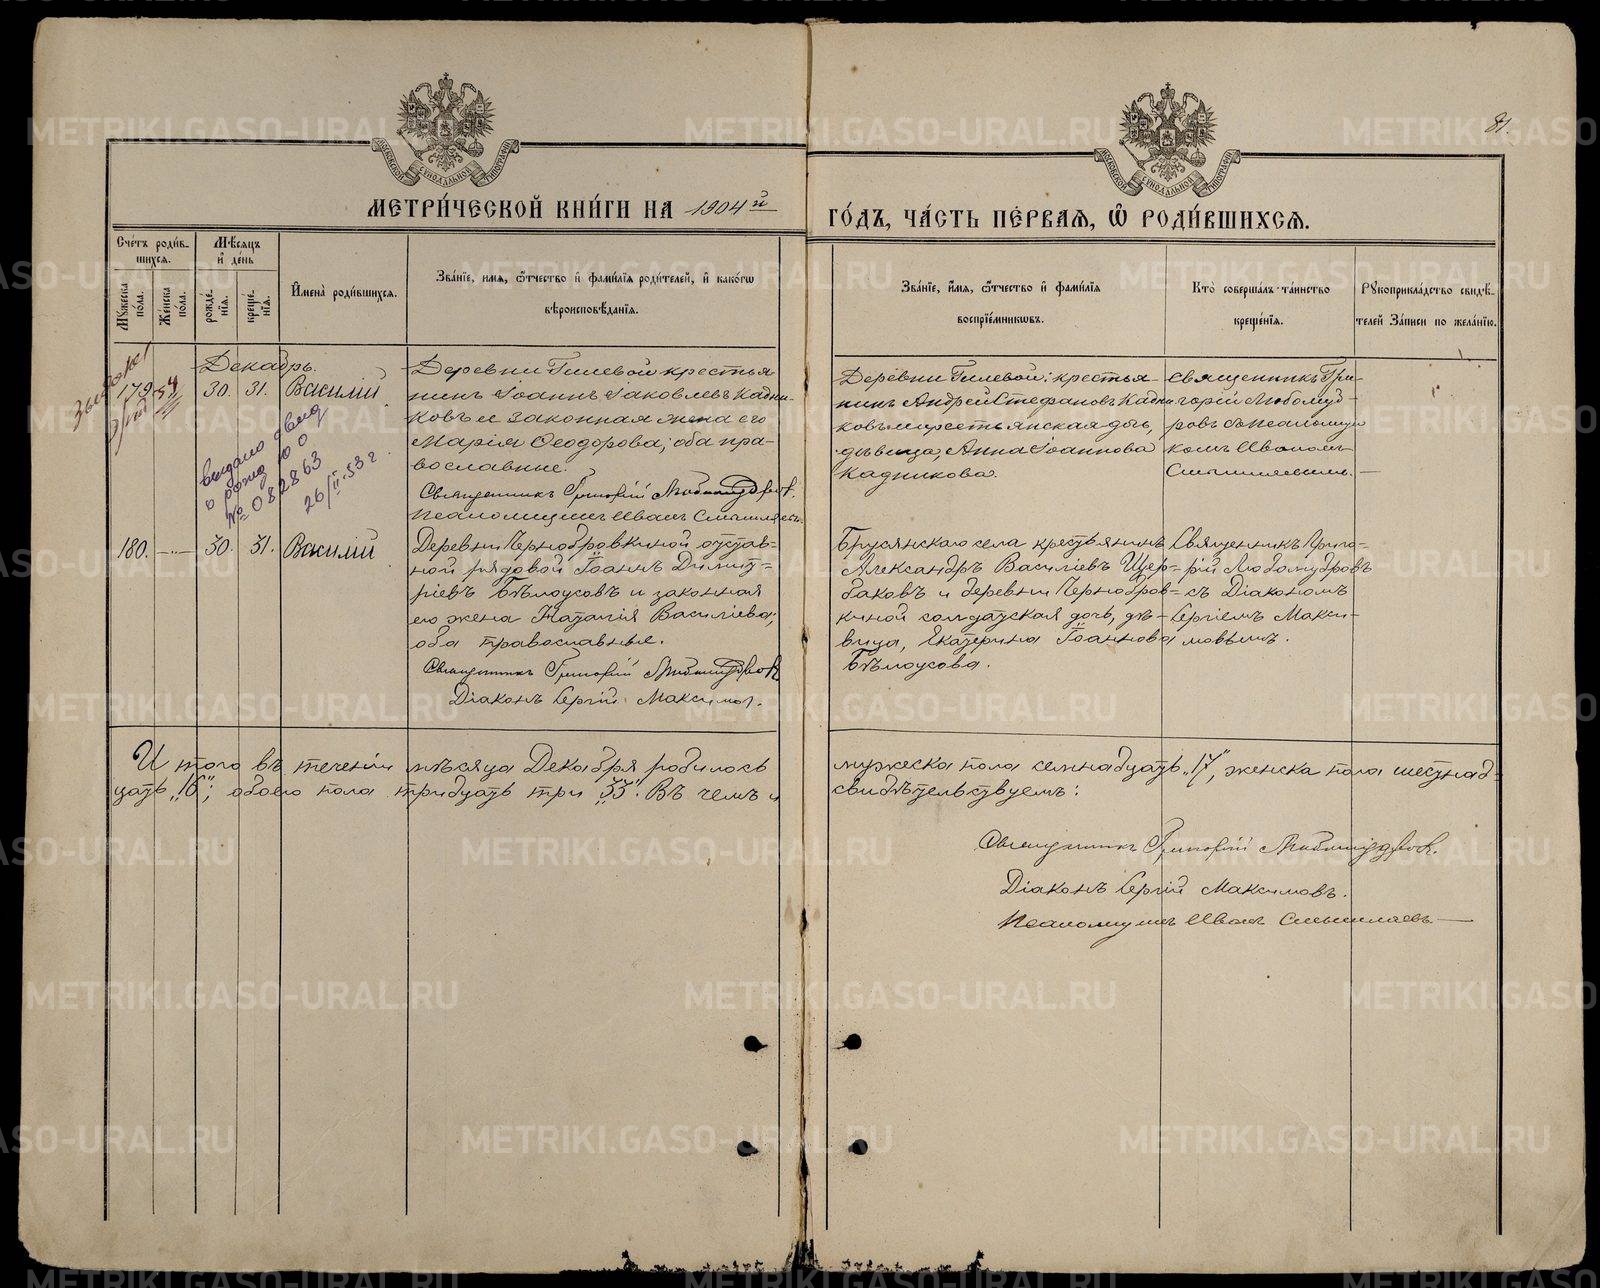 81.
МОСКОВСКОЙ СУНОДАЛЬНОЙ ТИПОГРАФІИ
МОСКОВСКОЙ СУНОДАЛЬНОЙ ТИПОГРАФІИ
МЕТРИ́ЧЕСКОЙ КНИ́ГИ НА 1904й
ГО́ДЪ, ЧА́СТЬ ПЕ́РВАЯ, Ѡ РОДИ́ВШИХСѦ.
Сче́тъ роди́в-
шихся.
Мѣ́сяцъ
и де́нь
Мꙋ́жеска
по́ла.
Же́нска
по́ла.
рожде́-
нїя.
креще́-
нїя.
Имена̀ роди́вшихся.
Зва́нїе, имя, ѻ҆́тчество и фами́лїя роди́телей, и како́гѡ
вѣроисповѣ́данїя.
Зва́нїе, имя, ѻ҆́тчество и фами́лїя
воспрїе́мникѡвъ.
Кто̀ соверша́лъ та́инство
креще́нїя.
Рꙋкоприкла́дство свидѣ́-
телей За́писи по жела́нїю.
Декабрь.
179
54
30. 31. Василій
Деревни Гилевой крестья-
нинъ Іоаннъ Іаковлевъ Кадни-
ковъ и законная жена его
Марія Ѳеодорова; оба пра-
вославные.
Священникъ Григорій Любомудровъ.
Псаломщикъ Иванъ Смышляевъ.
Деревни Гилевой: крестья-
нинъ Андрей Стефановъ Кадни-
ковъ и крестьянская дочь,
дѣвица, Анна Іоаннова
Кадникова.
Священникъ Гри-
горій Любомуд-
ровъ съ Псаломщи
комъ Иваномъ
Смышляевымъ.
выдано свид
о рожд ю о
№ 082863
26/II-53 г.
180. 30. 31. Василій
Деревни Чернобровкиной отстав-
ной рядовой Іоаннъ Димит-
ріевъ Бѣлоусовъ и законная
его жена Наталія Василіева;
оба православные.
Священникъ Григорій Любомудровъ
Діаконъ Сергій Максимов.
Брусянскаго села крестьянинъ
Александръ Василіевъ Щер-
баковъ и деревни Чернобров-
киной солдатская дочь, дѣ-
вица, Екатерина Іоаннова
Бѣлоусова.
Священникъ Григо-
рій Любомудровъ
съ Діакономъ
Сергіемъ Макси-
мовымъ.
Итого въ теченіи мѣсяца Декабря родилось мужеска пола семнадцать „17“, женска пола шестнад-
цать „16“; обоего пола тридцать три „33“. Въ чемъ и свидѣтельствуемъ:
Священникъ Григорій Любомудровъ.
Діаконъ Сергій Максимовъ.
Псаломщикъ Иванъ Смышляевъ
METRIKI.GASO-URAL.RU